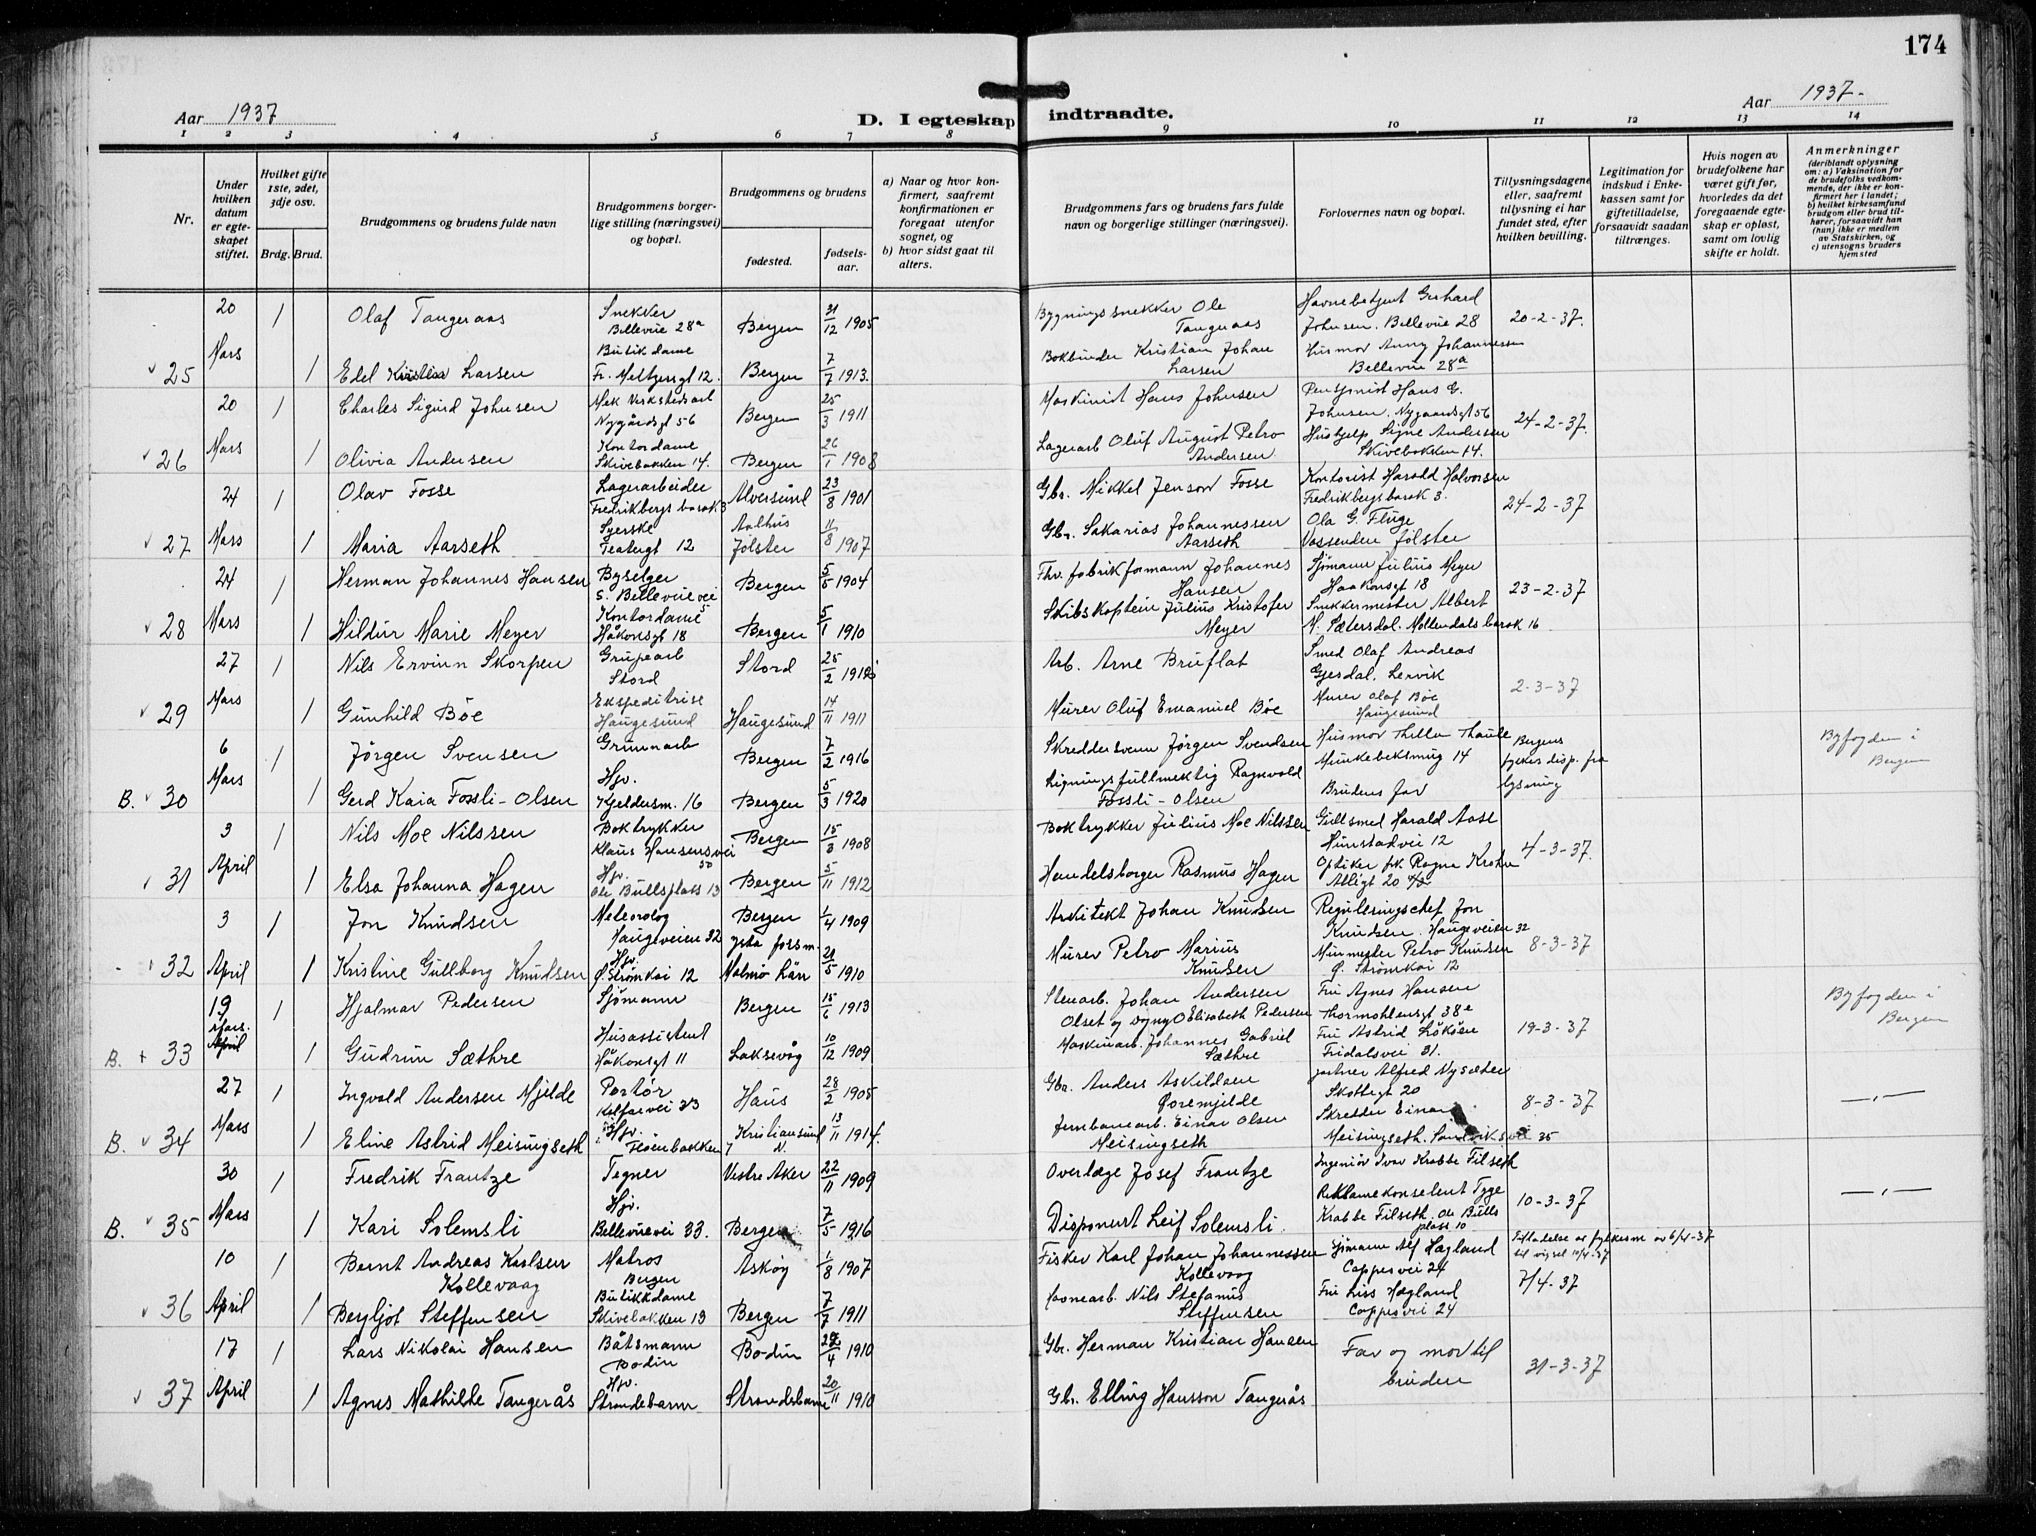 174
Aar 1937
D. I egteskap indtraadte.
Aar 1937-
1 2 3 4 5 6 7 8 9 10 11 12 13 14
Nr.
Under hvilken datum er egteskapet stiftet.
Hvilket gifte 1ste, 2det, 3dje osv.
Brdg. Brud.
Brudgommens og brudens fulde navn
Brudgommens borgerlige stilling (næringsvei) og bopæl.
Brudgommens og brudens
fødested.
fødselsaar.
a) Naar og hvor konfirmert, saafremt konfirmationen er foregaat utenfor sognet, og
b) hvor sidst gaat til alters.
Brudgommens fars og brudens fars fulde navn og borgerlige stillinger (næringsvei).
Forlovernes navn og bopæl.
Tillysningsdagene eller, saafremt tillysning ei har fundet sted, efter hvilken bevilling.
Legitimation for indskud i Enkekassen samt for giftetilladelse, forsaavidt saadan tiltrænges.
Hvis nogen av brudefolkene har været gift før, hvorledes da det foregaaende egteskap er opløst, samt om lovlig skifte er holdt.
Anmerkninger
(deriblandt oplysning om: a) Vaksination for de brudefolks vedkommende, der ikke er konfirmert her i landet; b) hvilket kirkesamfund brudgom eller brud tilhører, forsaavidt han (hun) ikke er medlem av Statskirken, og c) utensogns bruders hjemsted
20 1 Olaf Tangeraas Snekker Bellevue 28a Bergen 31/12 1905 Bygningssnekker Ole Tangeraas Havnebetjent Gerhard Johnsen. Bellevue 28 20-2-37.
25 Mars 1 Edel Larsen Butikdame Fr. Meltzersgt 12. Bergen 7/7 1913. Bokbinder Kristian Johan Larsen Husmor Anny Johannessen Bellevue 28a
20 1 Charles Sigurd Johnsen Mek Verkstedsarb Nygårdsgt 56 Bergen 25/3 1911 Maskinist Hans Johnsen Hans G. Johnsen. Nygaardsgt 56 24-2-37.
26 Mars 1 Olivia Andersen Kontordame Skivebakken 14. Bergen 26/1 1908 Lagerarb Oluf August Petro Andersen Hushjelp Signe Andersen Skivebakken 14.
24 1 Olav Fosse Lagerarbeider Fredrikbergs barak 3 Alversund 23/8 1901 Gbr. Mikkel Jenson Fosse Kontorist Harald Halvorsen Fredrikbergsbarak 3. 24-2-37
27 Mars 1 Maria Aarseth Syerske Teatergt 12 Aalhus Jølster 11/8 1907 Gbr. Sakarias Johannessen Aarseth Ola G. Fluge Vassenden Jølster
24 1 Herman Johannes Hansen Byselger S. Bellevuevei 5 Bergen 5/5 1904 Fhv. fabrikformann Johannes Hansen Sjømann Julius Meyer Haakonsgt 18 23-2-37
28 Mars 1 Hildur Marie Meyer Kontordame Håkonsgt 18 Bergen 5/1 1910 Skibskaptein Julius Kristofer Meyer Snekkermester Albert M. Sætersdal. Møllendalsbarak 16
27 1 Nils Ervinn Skorpen Grupearb Stord Stord 25/2 Arb. Arne Bruflat Smed Olaf Andreas Gjesdal, Lervik 2-3-37
29 Mars 1 Gunhild Bøe Ekspeditrise Haugesund Haugesund 14/11 1911 Murer Oluf Emanuel Bøe Murer Olaf Bøe Haugesund
6 1 Jørgen Svensen Grunnarb Bergen 7/2 1916 Skreddersvenn Jørgen Svendsen Husmor Munkebeksmug 14 Bergens fylkes disp. fra lysning Byfogden i Bergen
B. 30 Mars 1 Gerd Kaia Fossli-Olsen Hjv. Kjeldersm. 16 Bergen 5/3 1920 Ligningsfullmektig Ragnvald Fossli-Olsen Brudens far
3 1 Nils Moe Nilssen Boktrykker Klaus Hansensvei 50 Bergen 15/3 1908 Boktrykker Julius Moe Nilssen Gullsmed Harald Aase Hunstadvei 12 4-3-37.
31 April 1 Elsa Johanna Hagen Hjv. Ole Bullsplass 13 Bergen 5/11 1912 Handelsborger Rasmus Hagen Optiker frk. Ragna Krohn Alligt 20
3 1 Jon Knudsen Meteorolog Haugeveien 32 Bergen 1/4 1909 Arkitekt Johan Knudsen Reguleringschef Jon Knudsen. Haugeveien 32 8-3-37
32 April 1 Kristine Gullborg Knudsen Hjv. Ø. Strømkai 12 Malmø Län 5 1910 Murer Petro Marius Knudsen Murmester Petro Knudsen Ø. Strømkai 12
19 Mars. 1 Hjalmar Pedersen Sjømann Bergen 15/6 1913 Stenarb. Johan Andersen Olset og Elisabeth Pedersen Fru Agnes Hansen Thormøhlensgt 38e 19-3-37 Byfogden i Bergen
B. + 33 April 1 Gudrun Sæthre Husassistent Håkonsgt 11 Laksevåg 10/12 1909 Maskinarb. Johannes Gabriel Sæthre Fru Astrid Fridalsvei 31.
27 1 Ingvald Andersen Mjelde Portør Kalfarvei 33 Haus 28/2 1905 Gbr. Anders Askildsen Øvremjelde gartner Alfred Nysæter Skottegt 20 8-3-37 —"—
B. 34 Mars 1 Eline Astrid Meisingseth Hjv. Fløenbakken 7 Kristiansund N. 13/11 1914. Jernbanearb. Einar Olsen Meisingseth Skredder Einar Meisingseth. Sandviksvei 35
30 1 Fredrik Frantze Tegner Vestre Aker 22/11 1909 Overlæge Josef Frantze Ingeniør Ivar Krabbe Filseth 10-3-37 —"—
B. 35 Mars 1 Kari Solemsli Hjv. Bellevuevei 33. Bergen 7/5 1916 Disponent Leif Solemsli. Reklamekonselent Tyge Krabbe Filseth. Ole Bulls plass 10
10 1 Bernt Andreas Karlsen Kollevaag Matros Bergen Askøy 1/8 1907 Fisker Karl Johan Johannessen Kollevaag Sjømann Alf Hagland Coppesvei 24 Tilladelse av fylkesm av 6/4-37 til vigsel 10/4-37 7/4-37
36 April 1 Bergljot Steffensen Butikkdame Skivebakken 13 Bergen 7/7 1911 Havnearb. Nils Stefanus Steffensen Fru Liss Hagland Coppesvei 24
17 1 Lars Nikolai Hansen Båtsmann Bodin Bodin 4 1910 Gbr. Herman Kristian Hansen Far og mor til bruden 31-3-37
37 April 1 Agnes Mathilde Tangerås Hjv. Strandebarm Strandebarm 20/11 1910 Gbr. Elling Hansson Tangerås